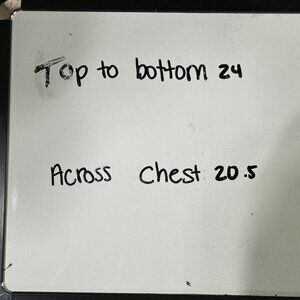 Top to bottom 24
Across chest 20.5